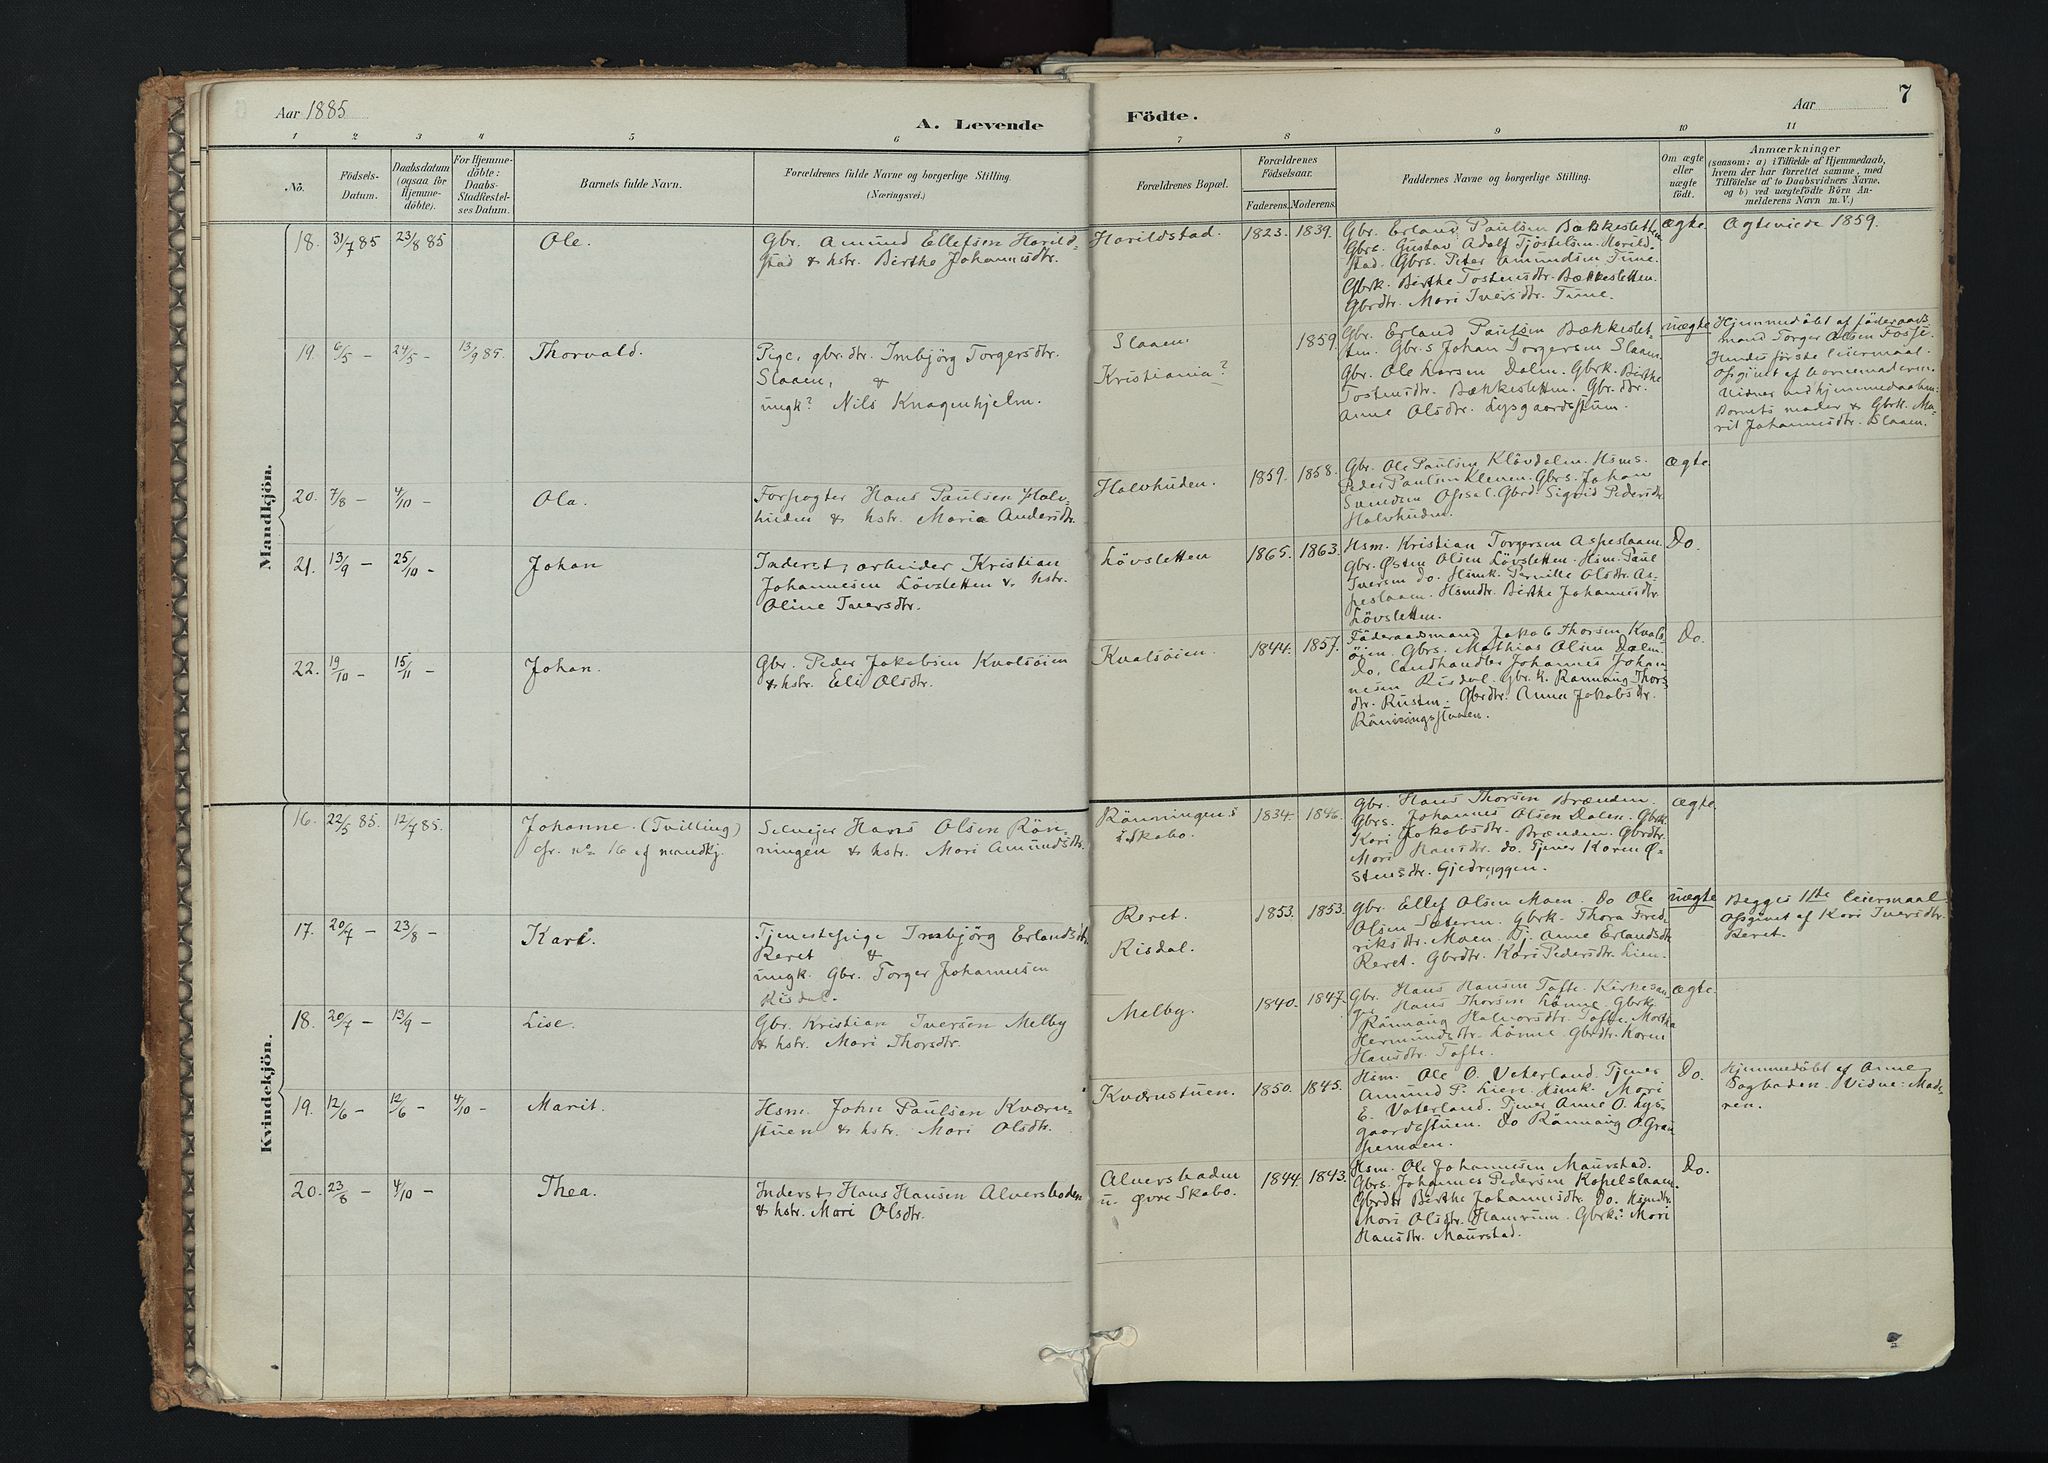 Aar 1885
A. Levende
Födte.
Aar
7
1
2
3
4
5
6
7
8
9
10
11
No.
Födsels-
Datum.
Daabsdatum
(ogsaa for
Hjemme-
döbte).
For Hjemme-
döbte:
Daabs-
Stadfæstel-
ses Datum.
Barnets fulde Navn.
Forældrenes fulde Navne og borgerlige Stilling.
(Næringsvei.)
Forældrenes Bopæl.
Forældrenes
Födselsaar.
Faderens.
Moderens.
Faddernes Navne og borgerlige Stilling.
Om ægte
eller
uægte
födt.
Anmærkninger
(saasom: a) i Tilfælde af Hjemmedaab,
hvem der har forrettet samme, med
Tilföielse af to Daabsvidners Navne,
og b) ved uægtefödte Börn An-
melderens Navn m. V.)
Mandkjön.
18.
31/7 85
23/8 85
Ole.
Gbr. Amund Ellefsen Harild-
stad & hstr. Birthe Johannisdtr.
Harildstad.
1823.
1839.
Gbr. Erland Paulsen Bækkesletten
Gbrs. Gustav Adolf Tjöstelsen Harild-
stad. Gbrs. Peter Amundsen Tune.
Gbrk. Birthe Tostensdtr. Bækkesletten.
Gbrdtr. Mari Iversdtr. Tune.
Ægte
Ægteviede 1859.
19.
6/5 -
24/5 -
13/9 85.
Thorvald.
Pige, gbr.dtr. Imbjörg Torgersdtr.
Slaaen, &
ungk? Nils Knagenhjelm.
Slaaen.
Kristiania?
1859
Gbr. Erland Paulsen Bækkeslet-
ten. Gbr.s Johan Torgersen Slaaen.
Gbr. Ole Larsen Dalen. Gbrk. Birthe
Tostensdtr. Bækkesletten. Gbr. dtr.
Anne Olsdtr. Lysgaardsstuen.
uægte
Hjemmedöbt af föderaads-
mand Torger Olsen Fosse.
Hendes förste leiermaal.
Opgivet af barnemoderen.
Vidner ved hjemmedaaben:
Barnets moder & Gbrk. Ma-
rit Johannesdtr. Slaaen.
20.
7/8 -
4/10 -
Ola.
Forpagter Hans Paulsen Halv-
huden & hstr. Maria Andersdtr.
Halvhuden.
1859.
1858.
Gbr. Ole Paulsen Klövdalen. Hsms.
Peder Paulsen Klevene. Gbrs. Johan
Opsal. Gbrd. Sigrid Pedersdtr.
Halvhuden.
Ægte.
21.
13/9 -
25/10 -
Johan
Inderst, arbeider Kristian
Johannesen Lövsletten & hstr.
Oline Iversdtr.
Lövsletten
1865.
1863.
Hsm. Kristian Torgersen Aspeslaaen.
Gbr. Østen Olsen Lövsletten. Hsm. Paul
Iversen do. Hsmk. Pernille Olsdtr. As-
peslaaen. Hsmdtr. Birthe Johannisdtr.
Lövsletten.
Do.
22.
19/10 -
15/11 -
Johan.
Gbr. Peder Jakobsen Kvalsöien
& hstr. Eli Olsdtr.
Kvalsöien.
1844.
1857.
Föderaadsmand Jakob Thorsen Kvals-
öien. Gbrs. Mathias Olsen Dalen.
Do, landhandler Johannes Johan-
nesen Risdal. Gbr. k. Rannaug Thors-
dtr. Rusten. Gbrdtr. Anna Jakobsdtr.
Rönningsstuen.
Do.
Kvindekjön.
16.
22/5 85.
12/7 85.
Johanne. (Tvilling)
cfr. no 16 af mandkj.
Selveier Hans Olsen Rön-
ningen & hstr. Mari Amundsdtr.
Rönningen
i Skabo.
1834.
1846.
Gbr. Hans Thorsen Brænden.
Gbrs. Johannes Olsen Dalen. Gbrk
Kari Jakobsdtr. Brænden. Gbrdtr.
Mari Hansdtr. do. Tjener Karen Ø-
stensdtr. Gjedryggen.
Ægte
17.
20/7 -
23/8 -
Kari.
Tjenestepige Imbjörg Erlandsdtr.
Reret &
ungk. Gbr. Torger Johannesen
Risdal.
Reret.
Risdal.
1853.
1853.
Gbr. Ellef Olsen Moen. Do Ole
Olsen Sæteren. Gbrk. Thora Fred-
riksdtr. Moen. Tj. Anne Erlandsdtr.
Reret. Gbrdtr. Kari Pedersdtr. Lien.
uægte
Begges 1ste leiermaal
Opgivet af Kari Iversdtr.
Reret.
18.
20/7 -
13/9 -
Lise.
Gbr. Kristian Iversen Melby
& hstr. Mari Thorsdtr.
Melby.
1840.
1847.
Gbr. Hans Hansen Tofte. Kirkesan-
ger Hans Thorsen Lönne. Gbrk.
Rannaug Halvorsdtr. Tofte. Martha
Hermundsdtr. Lönne. Gbrdtr. Karen
Hansdtr. Tofte.
Ægte.
19.
12/6 -
12/6 -
4/10 -
Marit.
Hsm. John Paulsen Kværn-
stuen & hstr. Mari Olsdtr.
Kværnstuen.
1850.
1845.
Hsm. Ole O. Vaterland. Tjener
Amund P. Lien. Hsmk. Mari
E. Vaterland. Tjener Anne O. Lys-
gaardsstuen. Do Rannaug O. Grau-
pemoen.
Do.
Hjemmedöbt af Anne
Bagbaden. Vidne: Mode-
ren.
20.
23/8 -
4/10 -
Thea.
Inderst Hans Hansen Alversbaden
& hstr. Mari Olsdtr.
Alversbaden
u. övre Skabo.
1844.
1843.
Hsm. Ole Johannesen Maurstad.
Gbrs. Johannes Pedersen Kapelslaaen.
Gbrdtr Birthe Johannisdtr. Do. Hsmdtr.
Mari Olsdtr. Hamrum. Gbrk: Mari
Hansdtr. Maurstad.
Do.